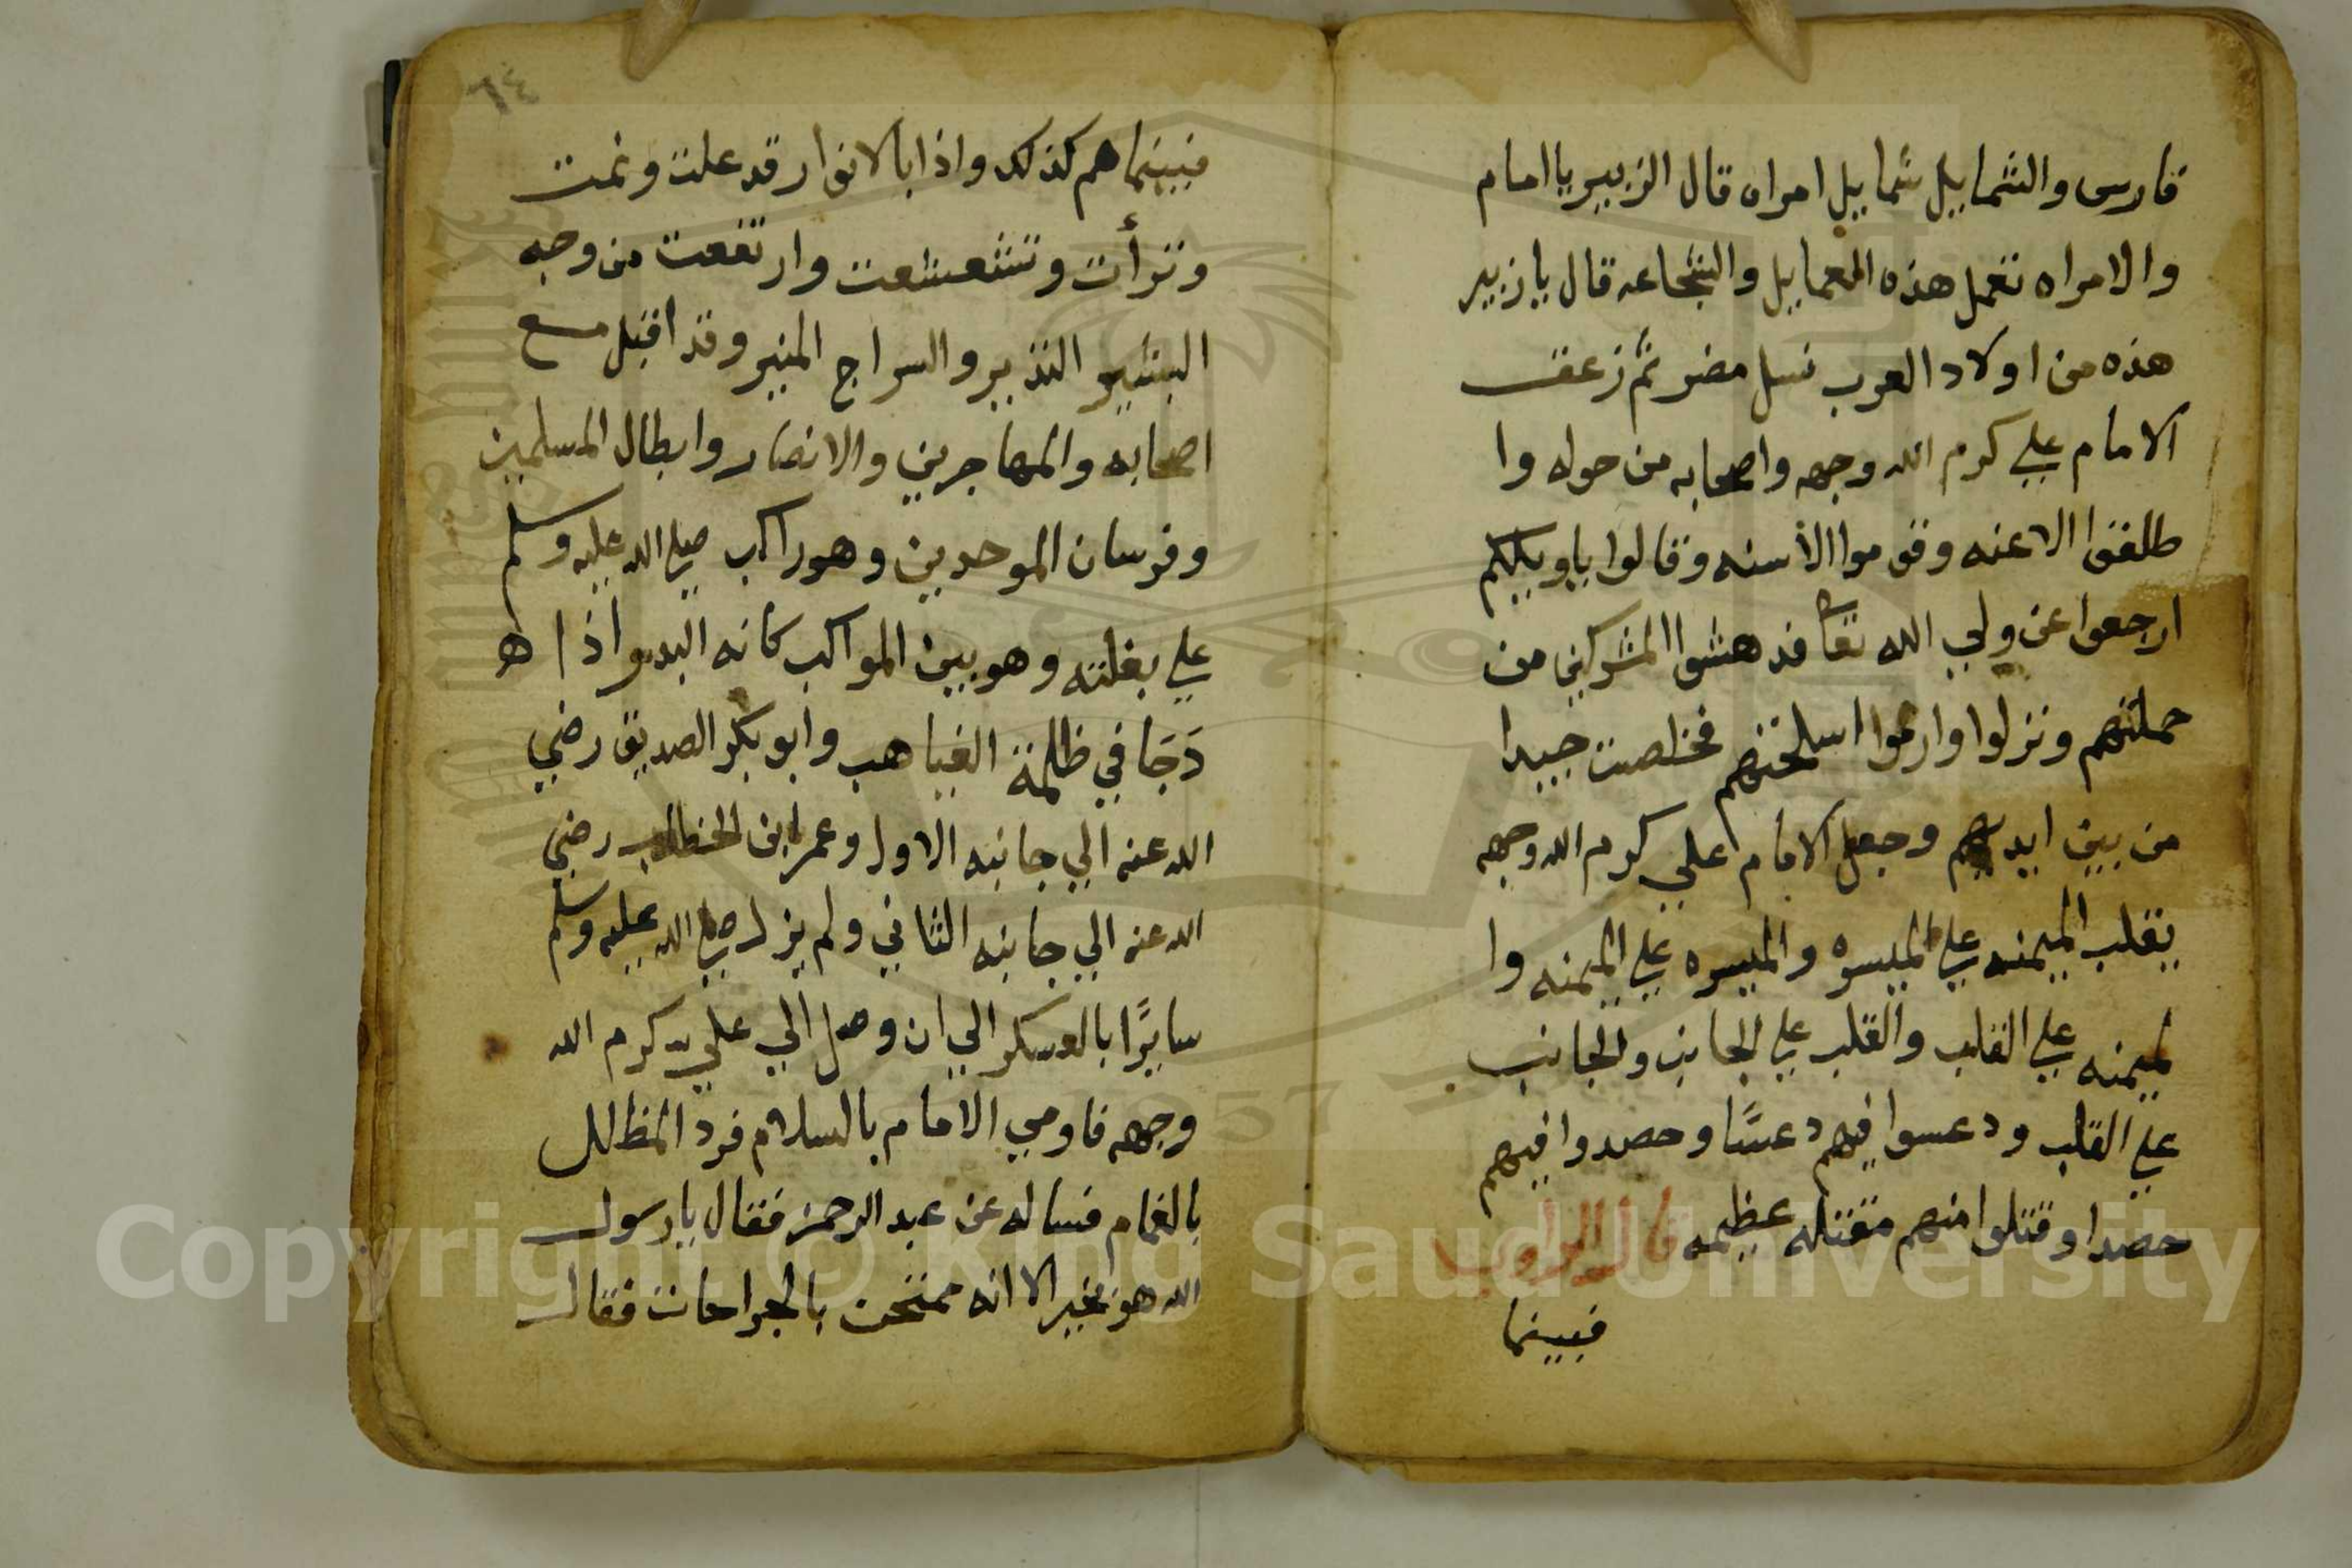 فارس والشمايل شمايل امراه قال الزبير يا امام
والامراه تعمل هذه المعمايل والشجاعه قال يا زبير
هذه من اولاد العرب نسل مضر ثم زعق
الامام علي كرم الله وجهه واصحابه من حوله وا
طلقوا الاعنه وقوموا الأسنه وقالوا يا ويلكم
ارجعوا عن ولي الله تعا فدهشوا المشركين من
حملتهم ونزلوا وارموا اسلحتهم فخلصت جيدا
من بين ايديهم وجعل الامام علي كرم الله وجهه
يقلب الميمنه علي الميسره والميسره علي الميمنه وا
لميمنه علي القلب والقلب علي الجانب والجانب
علي القلب ودعسوا فيهم دعسًا وحصدوا فيهم
حصدا وقتلوا منهم مقتله عظيمه قال الراوي
فبينما
٦٤
فبينما هم كذلك واذا بالانوار قد علت ونمت
وترأت وتشعشعت وارتفعت من وجه
البشير النذير والسراج المنير وقد اقبل مع
اصحابه والمهاجرين والانصار وابطال المسلمين
وفرسان الموحدين وهو راكب صلي الله عليه وسلم
علي بغلته وهو بين المواكب كانه البدر اذا ه
دَجَا في ظلمة الغياهب وابو بكر الصديق رضي
الله عنه الي جانبه الاول وعمر ابن الخطاب رضي
الله عنه الي جانبه الثاني ولم يزل صلي الله عليه وسلم
سايرًا بالعسكر الي ان وصل الي علي كرم الله
وجهه فاومي الامام بالسلام فرد المظلل
بالغمام فساله عن عبد الرحمن فقال يا رسول
الله هو بخير الا انه ممتحن بالجراحات فقال
Copyright © King Saud University
1957